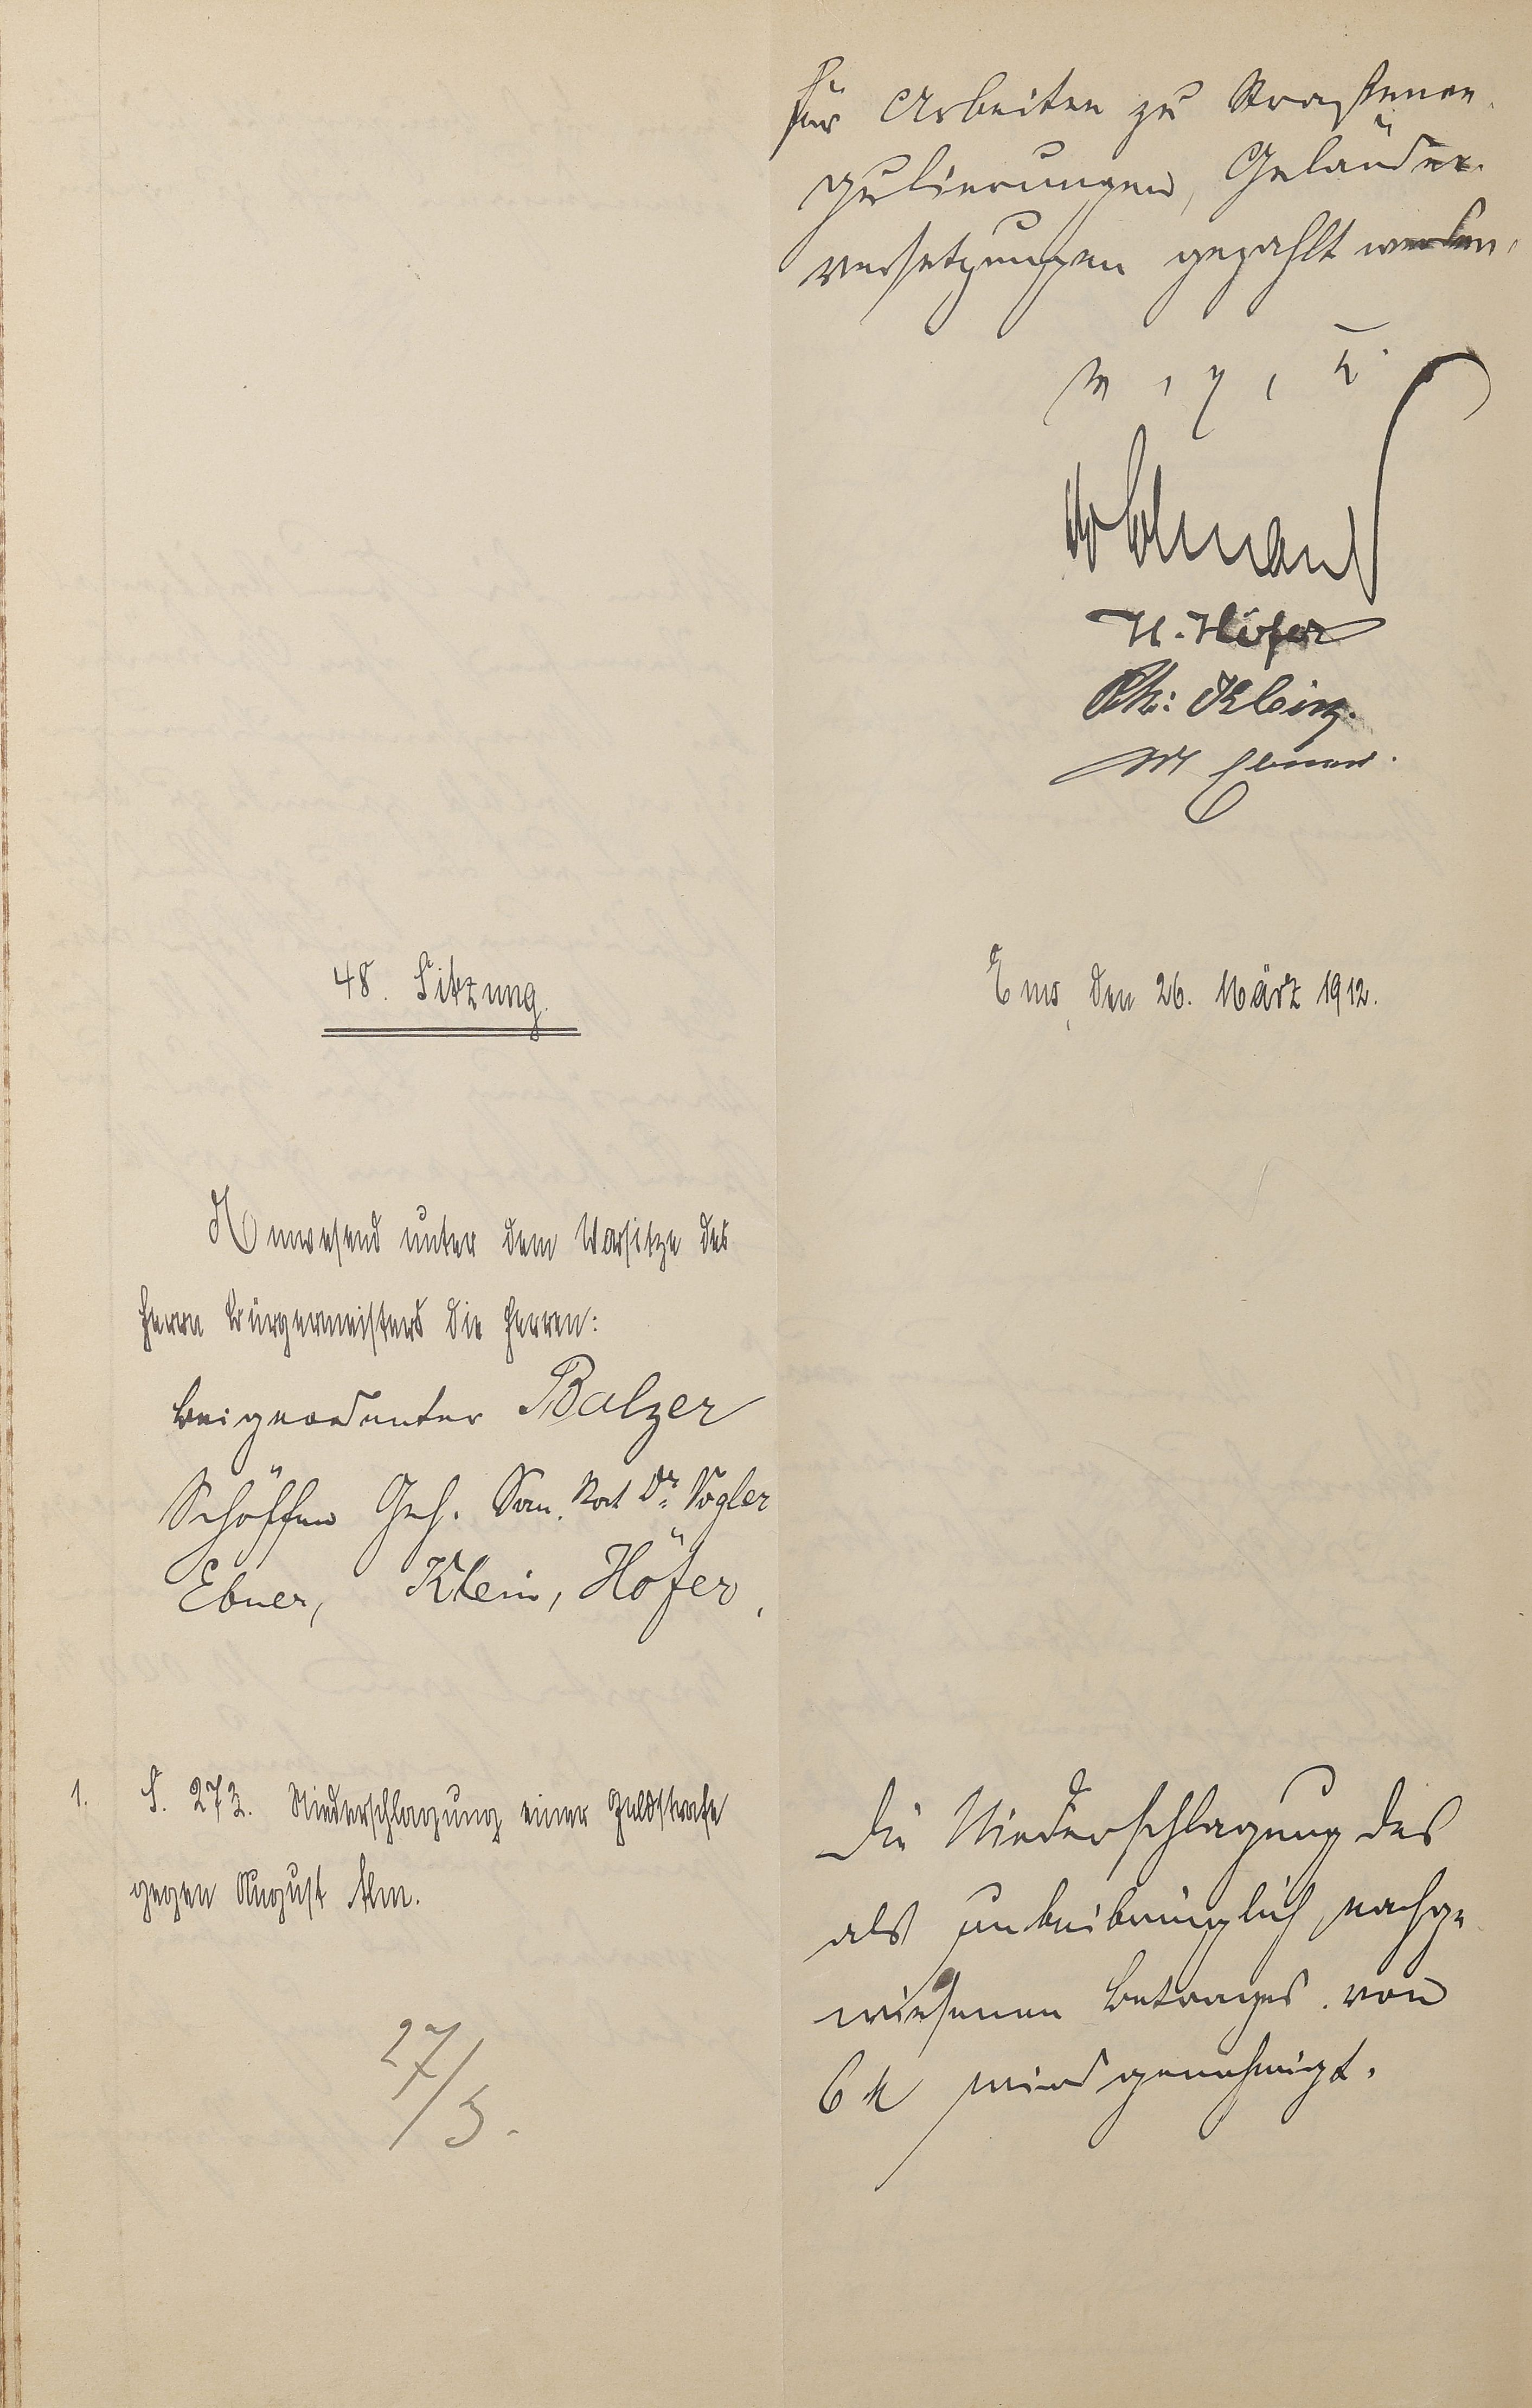 für Arbeiten zu Straßenre-
gulierungen, Geländer-
versetzungen gezahlt werden.
v. g. u.
H. Höfer
Ph: Klein.
W Ebner.
48. Sitzung.
Ems, den 26. März 1912.
Anwesend unter dem Vorsitze des
Herrn Bürgermeisters die Herren:
Beigeordneter Balzer
Schöffen Geh. San. Rat Dr. Vogler
Ebner, Klein, Höfer,
1. S. 273. Niederschlagung einer Geldstrafe
gegen August
27/3.
Die Niederschlagung des
als unbeibringlich nachge-
wiesenen Betrages von
6 M wird genehmigt.